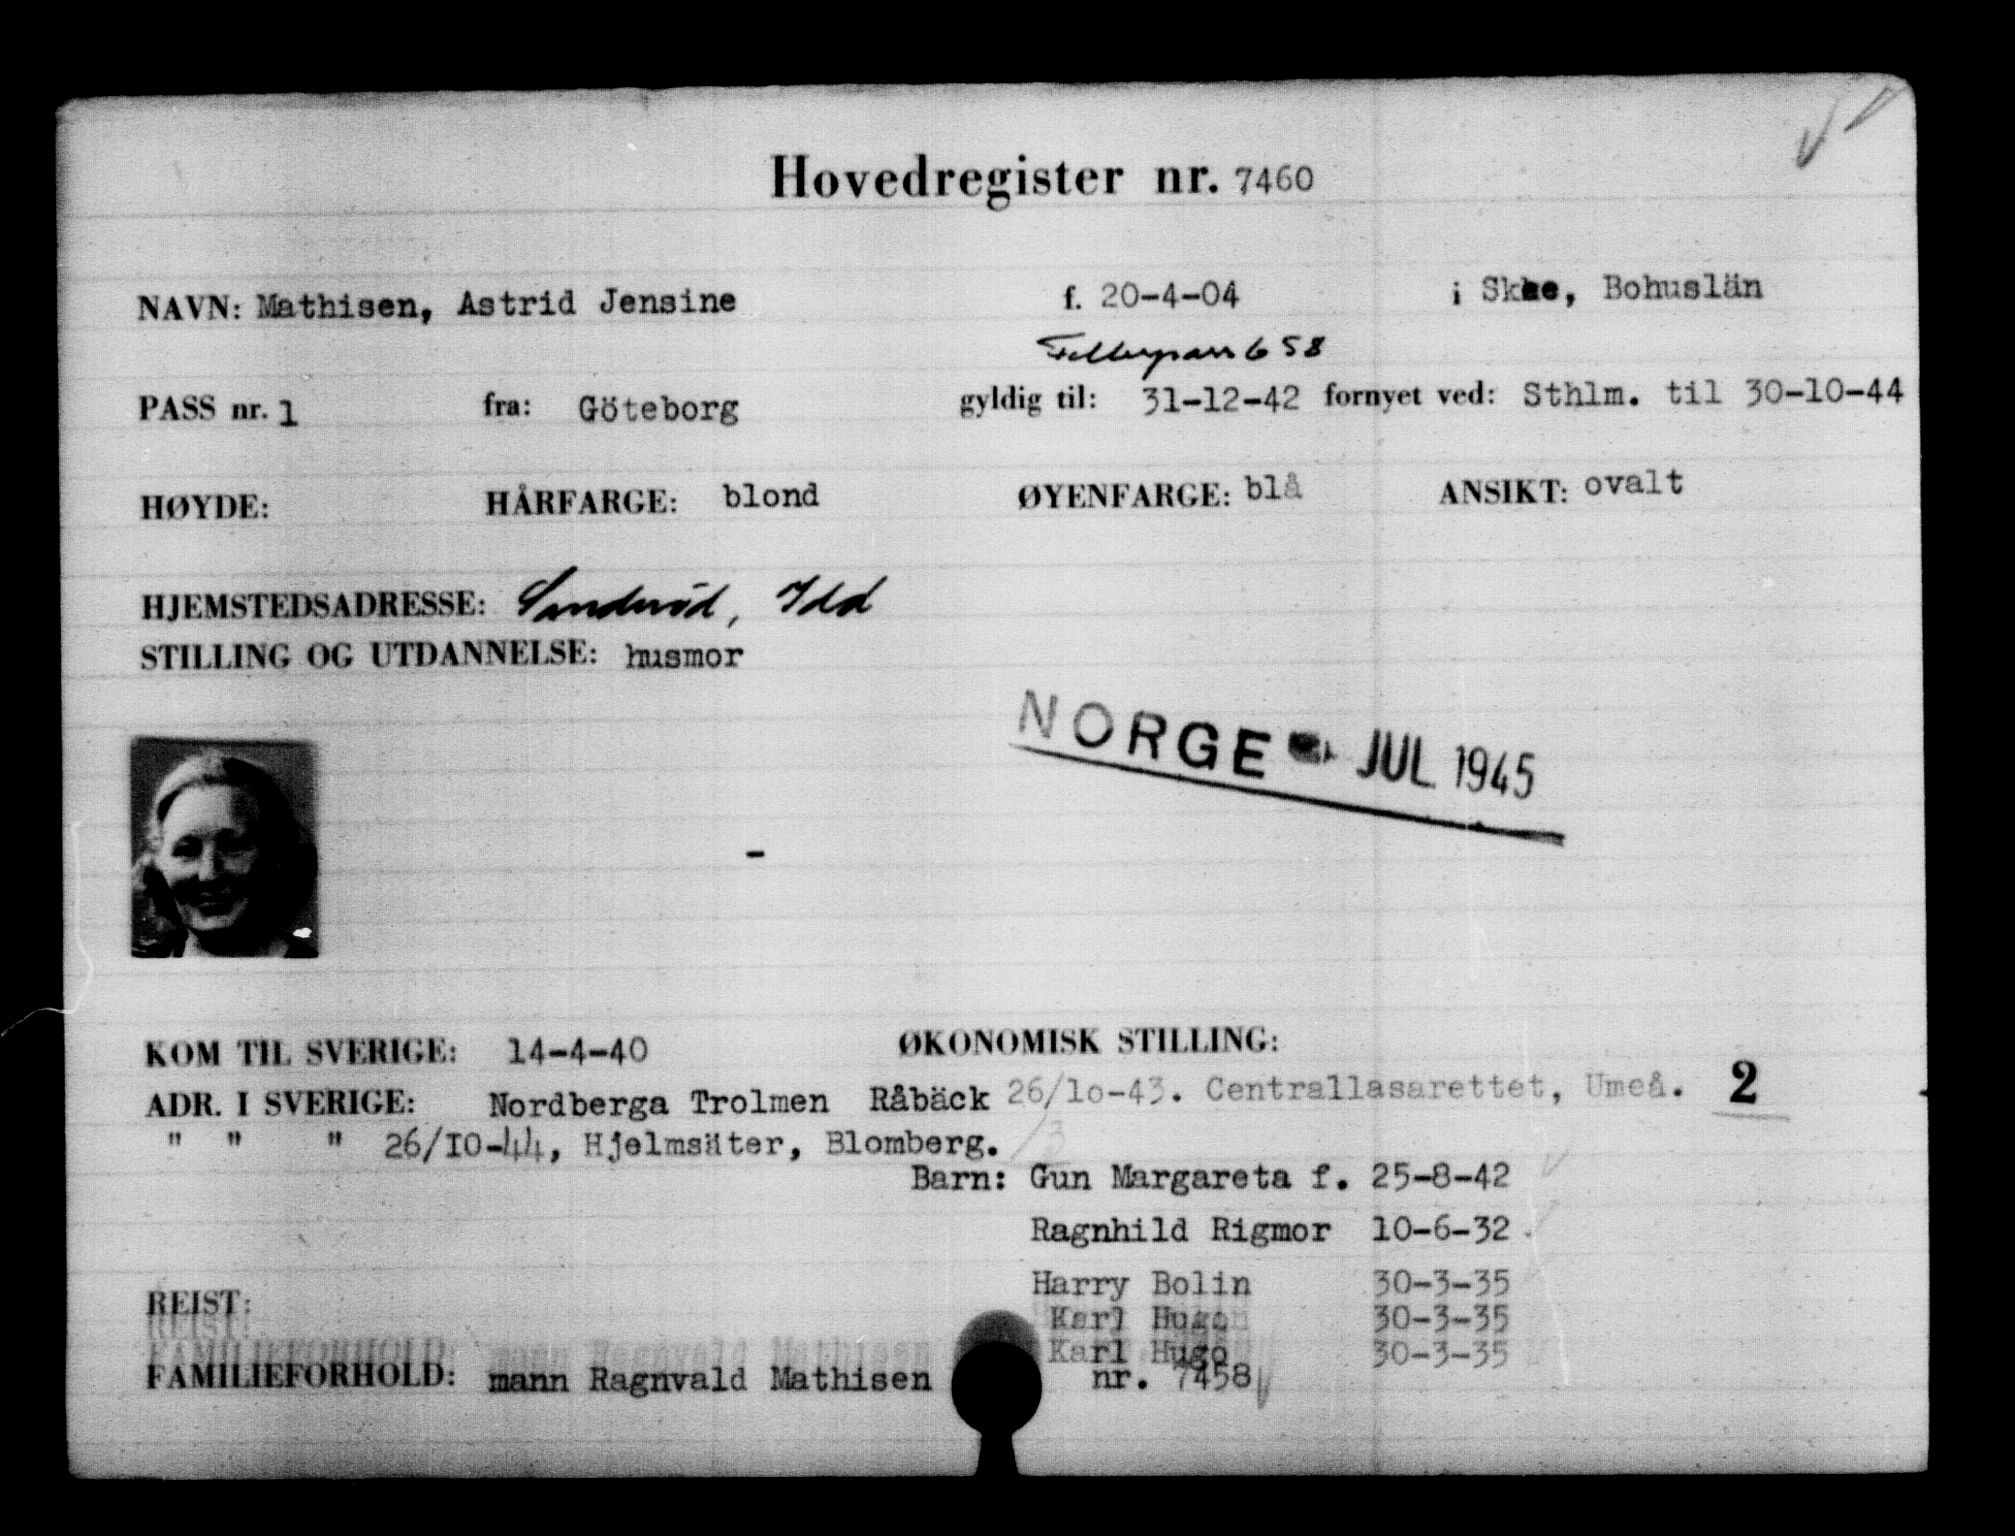 Hovedregister nr. 7460
NAVN: Mathisen, Astrid Jensine f. 20-4-04 i Skee, Bohuslän
Fellespass 658
PASS nr. 1 fra: Göteborg gyldig til: 31-12-42 fornyet ved: Sthlm. til 30-10-44
HØYDE: HÅRFARGE: blond ØYENFARGE: blå ANSIKT: ovalt
HJEMSTEDSADRESSE: Sanderöd, Idd
STILLING OG UTDANNELSE: husmor
NORGE JUL 1945
KOM TIL SVERIGE: 14-4-40 ØKONOMISK STILLING:
ADR. I SVERIGE: Nordberga Trolmen Råbäck 26/10-43. Centrallasarettet, Umeå. 2
" " " 26/10-44, Hjelmsäter, Blomberg.
Barn: Gun Margareta f. 25-8-42
Ragnhild Rigmor 10-6-32
Harry Bolin 30-3-35
REIST:
Karl Hugo 30-3-35
Karl Hugo 30-3-35
FAMILIEFORHOLD: mann Ragnvald Mathisen nr. 7458